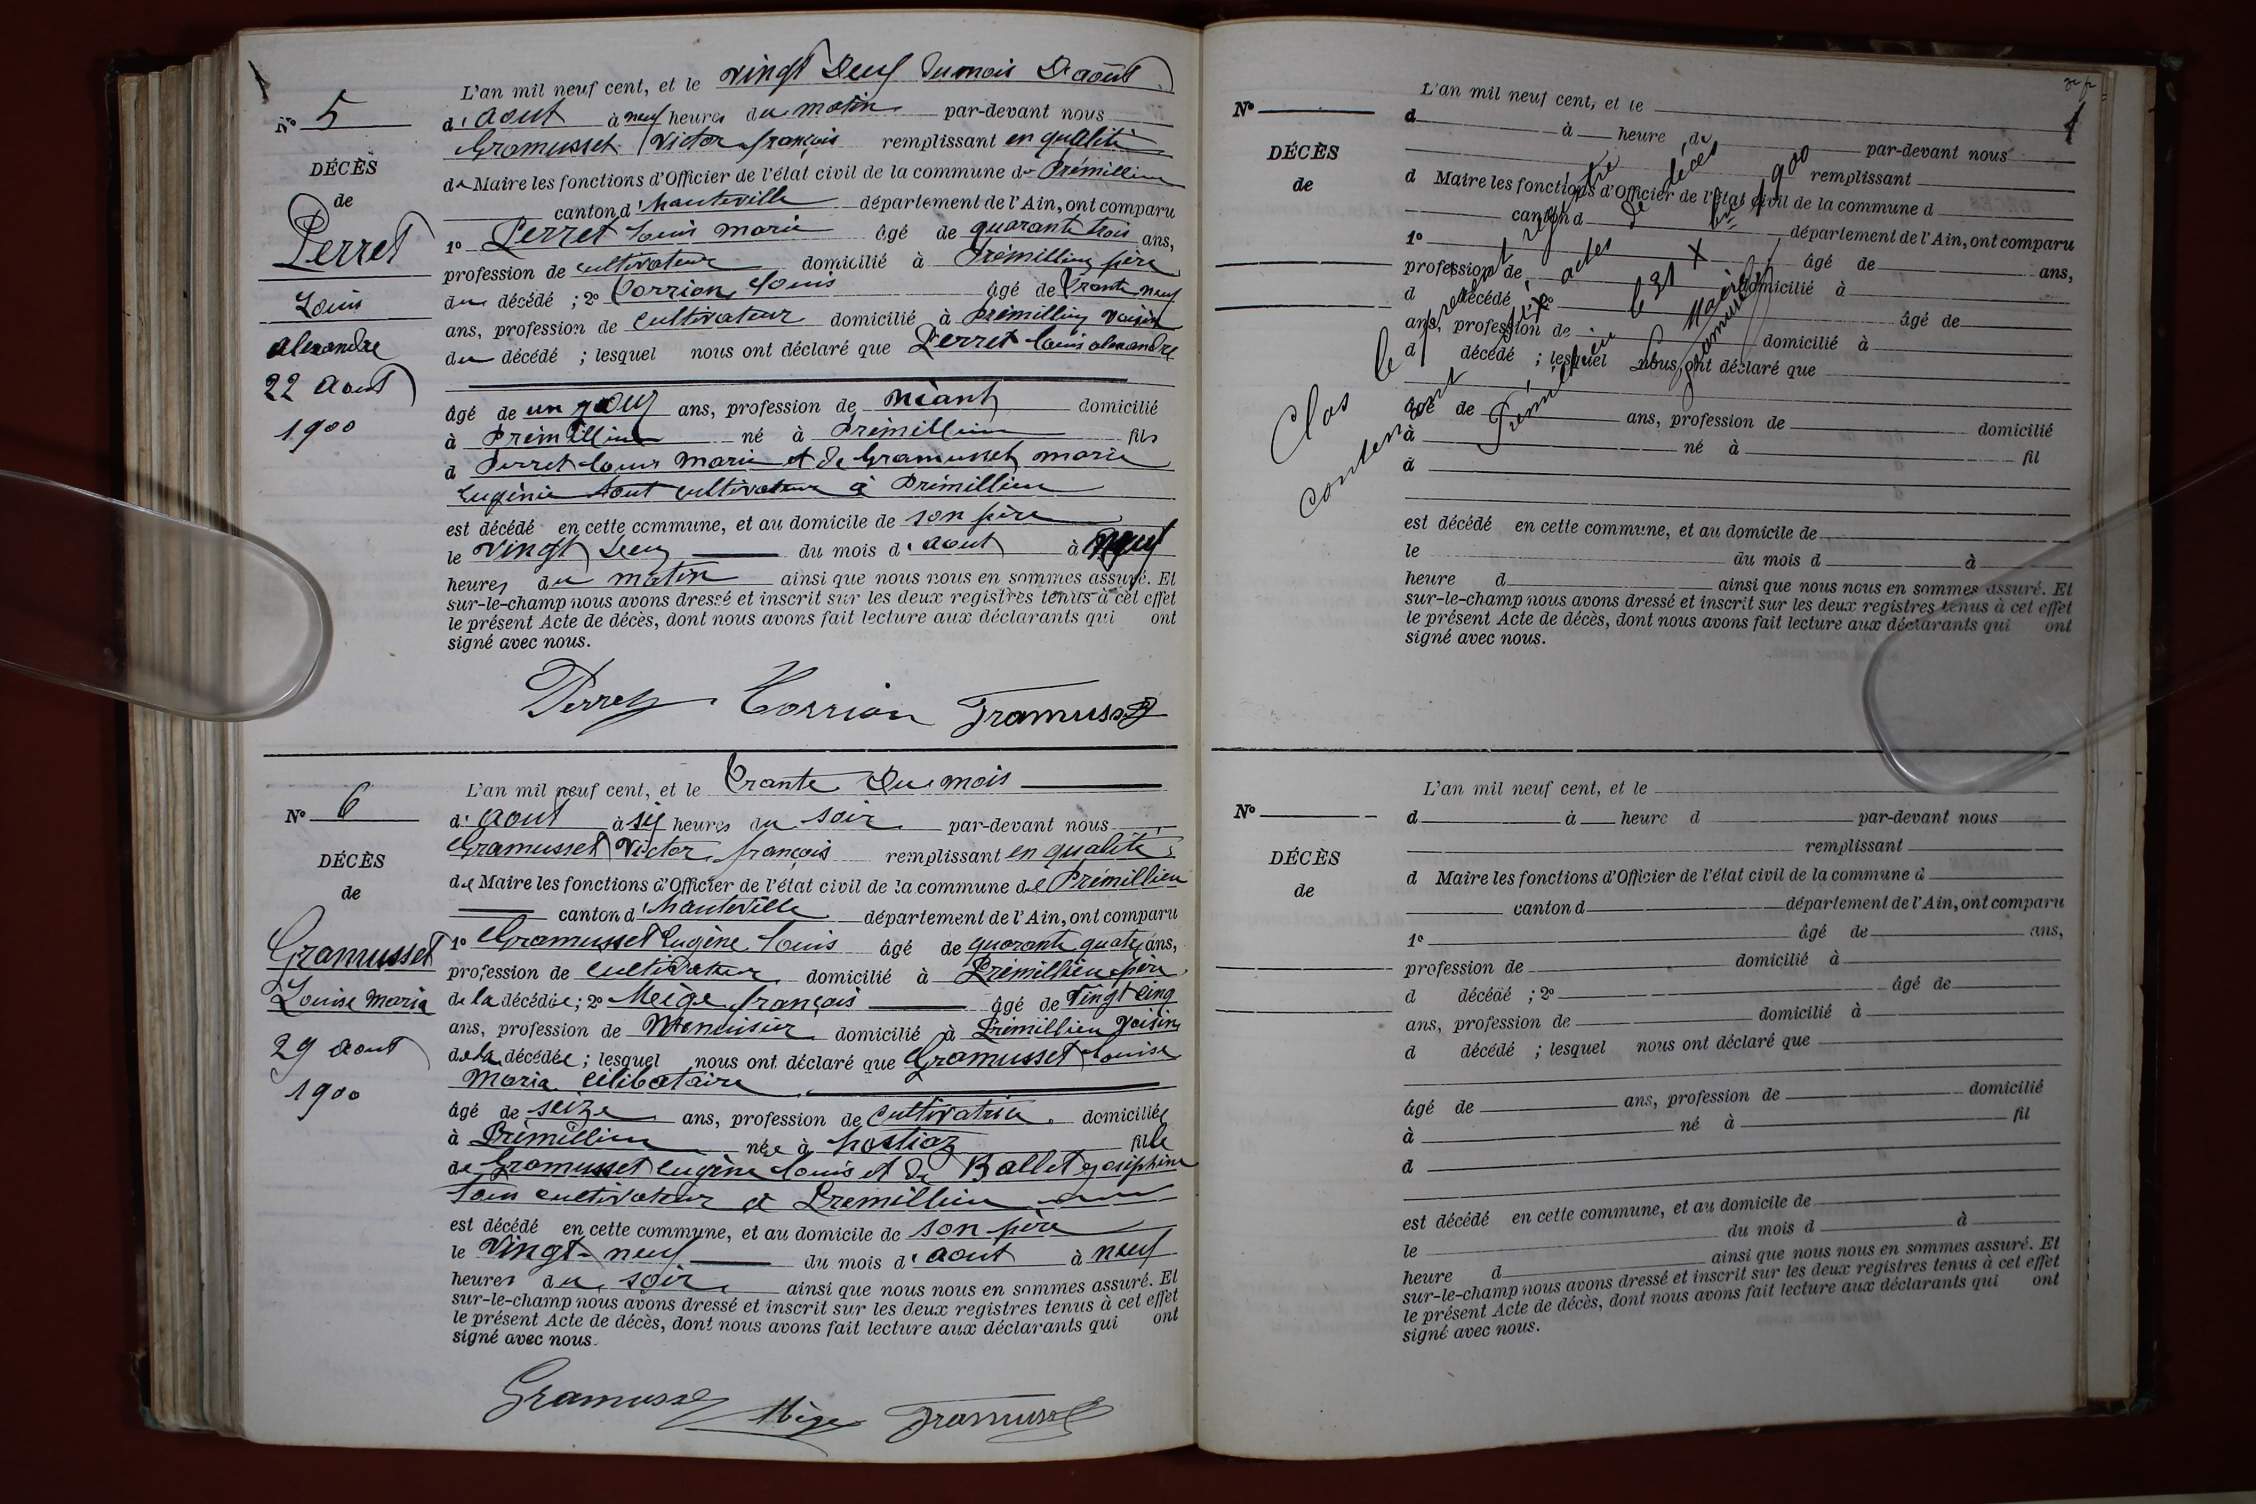 L'an mil neuf cent, et le vingt Deux du mois D'août
N° 5
d'août à neuf heures du matin par-devant nous
Gramusset Victor françois remplissant en qualité
DÉCÈS
de Maire les fonctions d'Officier de l'état civil de la commune de Prémillieu
de
canton d'hauteville département de l'Ain, ont comparu
Perret
1° Perret Louis marie âgé de quarante trois ans,
profession de cultivateur domicilié à Prémillieu père
Louis
du décédé ; 2° Corrion Louis âgé de trante neuf
ans, profession de cultivateur domicilié à Prémillieu voisin
alexandre
du décédé ; lesquel nous ont déclaré que Perret Louis alexandre
22 aout
1900
âgé de un jour ans, profession de néant domicilié
à Prémillieu né à Prémillieu fils
d Perret Louis Marie et de Gramusset marie
Eugénie tout cultivateur à Prémillieu
est décédé en cette commune, et au domicile de son père
le vingt Deux du mois d'aout à neuf
heures du matin ainsi que nous nous en sommes assuré. Et
sur-le-champ nous avons dressé et inscrit sur les deux registres tenus à cet effet
le présent Acte de décès, dont nous avons fait lecture aux déclarants qui ont
signé avec nous.
Perret Corrion Gramusset
L'an mil neuf cent, et le trante du mois
N° 6
d'aout à six heures du soir par-devant nous
Gramusset Victor françois remplissant en qualité
DÉCÈS
de Maire les fonctions d'Officier de l'état civil de la commune de Prémillieu
de
canton d'hauteville département de l'Ain, ont comparu
Gramusset
1° Gramusset Eugène Louis âgé de quarante quatre ans,
profession de cultivateur domicilié à Prémillieu père
Louise Maria
de la décédée ; 2° Meige françois âgé de vingt cinq
ans, profession de Menuisier domicilié à Prémillieu voisin
29 aout
de la décédée ; lesquel nous ont déclaré que Gramusset Louise
1900
Maria célibataire
âgé de seize ans, profession de cultivatrice domiciliée
à Prémillieu née à hostiaz fille
de Gramusset eugène Louis et de Ballet joséphine
tous cultivateur à Premillieu
est décédé en cette commune, et au domicile de son père
le vingt-neuf du mois d'aout à neuf
heures du soir ainsi que nous nous en sommes assuré. Et
sur-le-champ nous avons dressé et inscrit sur les deux registres tenus à cet effet
le présent Acte de décès, dont nous avons fait lecture aux déclarants qui ont
signé avec nous.
Gramusset Mège Gramusset
L'an mil neuf cent, et le
N°
d à heure de par-devant nous
DÉCÈS
remplissant
de
d Maire les fonctions d'Officier de l'état civil de la commune d
canton d département de l'Ain, ont comparu
1° âgé de ans,
profession de domicilié à
d décédé ; 2° âgé de
ans, profession de domicilié à
d décédé ; lesquel nous ont déclaré que
âgé de ans, profession de domicilié
à né à fil
d
est décédé en cette commune, et au domicile de
le du mois d à
heure d ainsi que nous nous en sommes assuré. Et
sur-le-champ nous avons dressé et inscrit sur les deux registres tenus à cet effet
le présent Acte de décès, dont nous avons fait lecture aux déclarants qui ont
signé avec nous.
Clos le présent registre de décès
contenant six actes
Prémillieu le 31 Xbre 1900
Le Maire
Gramusset
L'an mil neuf cent, et le
N°
d à heure d par-devant nous
remplissant
DÉCÈS
d Maire les fonctions d'Officier de l'état civil de la commune d
de
canton d département de l'Ain, ont comparu
1° âgé de ans,
profession de domicilié à
d décédé ; 2° âgé de
ans, profession de domicilié à
d décédé ; lesquel nous ont déclaré que
âgé de ans, profession de domicilié
à né à fil
d
est décédé en cette commune, et au domicile de
le du mois d à
heure d ainsi que nous nous en sommes assuré. Et
sur-le-champ nous avons dressé et inscrit sur les deux registres tenus à cet effet
le présent Acte de décès, dont nous avons fait lecture aux déclarants qui ont
signé avec nous.